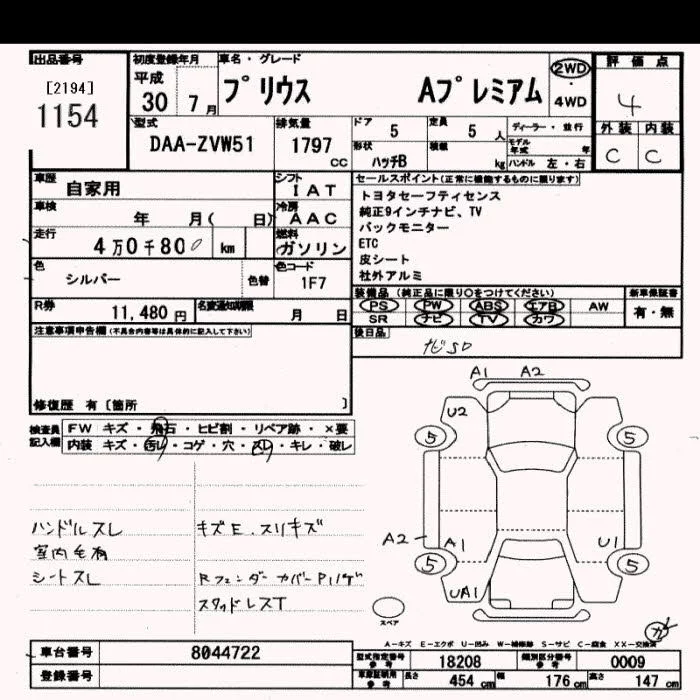 出品番号
[2194]
1154
初度登録年月
平成
30 7月
車名・グレード
プリウス Aプレミアム
2WD
・
4WD
評価点
4
外装 内装
C C
型式
DAA-ZVW51
排気量
1797 CC
ドア 5
定員 5人
ディーラー・並行
形状 ハッチB
積載 kg
モデル年式 年
ハンドル 左・右
車歴 自家用
シフト IAT
車検 年 月( 日)
冷房 AAC
走行 4万0千800 km
燃料 ガソリン
色 シルバー
色替
色コード 1F7
R券 11,480円
名変通知期限 月 日
セールスポイント(正常に機能するものに限ります)
トヨタセーフティセンス
純正9インチナビ、TV
バックモニター
ETC
皮シート
社外アルミ
装備品(純正品に限り○をつけてください)
新車保証書
PS PW ABS エアB AW
SR ナビ TV カワ
有・無
後日品
ナビSD
注意事項申告欄(不具合内容等は具体的に記入して下さい)
修復歴 有〔箇所 〕
検査員記入欄
FW キズ・飛石・ヒビ割・リペア跡・×要
内装 キズ・汚れ・コゲ・穴・スレ・キレ・破レ
ハンドルスレ
室内毛有
シートスレ
キズE.スリキズ
Rフェンダーカバー Pハゲ
スタッドレスT
A1 A2
U2
5 5
A2 A1 U1
5 5
UA1
スペア
ガ
A−キズ E−エクボ U−凹み W−補修跡 S−サビ C−腐食 XX−交換済
車台番号 8044722
登録番号
型式指定番号 参考 18208
類別区分番号 参考 0009
車庫証明用 参考
長さ 454 cm
幅 176 cm
高さ 147 cm